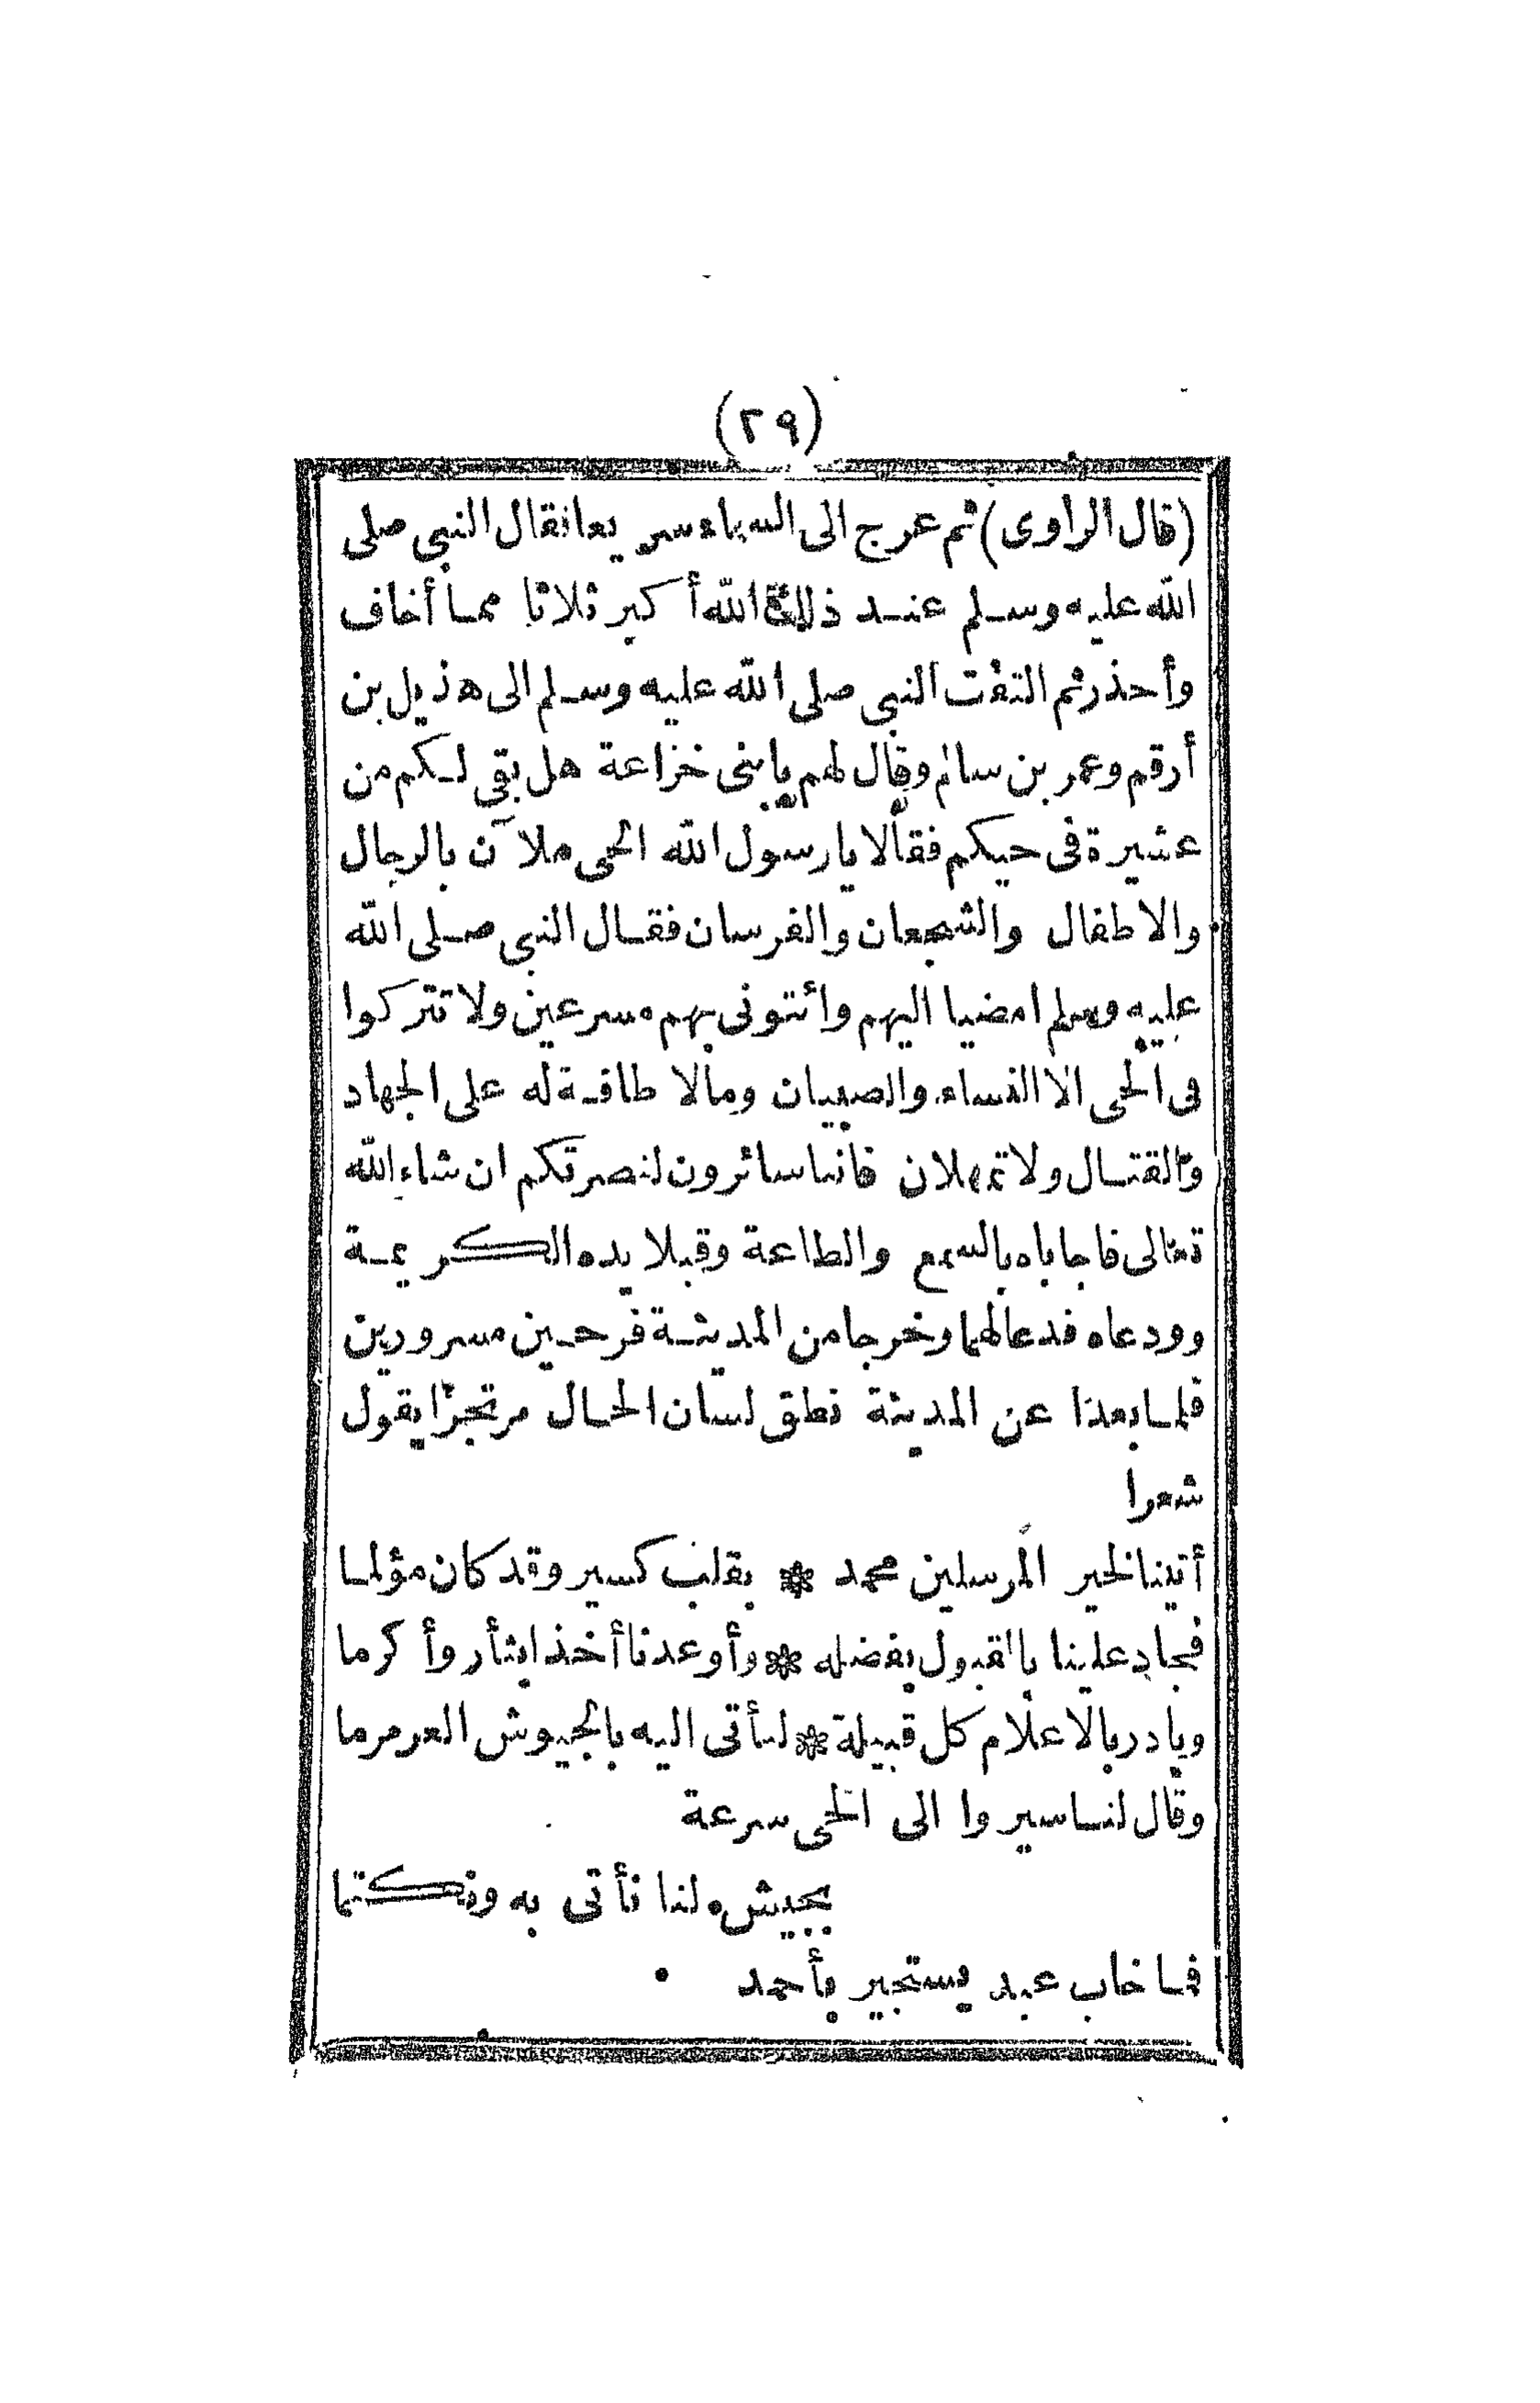 (٢٩)
(قال الراوى) ثم عرج الى السماء سريعا فقال النبى صلى
الله عليه وسلم عند ذلك الله أكبر ثلاثا مما أخاف
وأحذر ثم التفت النبى صلى الله عليه وسلم الى هذيل بن
أرقم وعمر بن سالم وقال لهم يا بنى خزاعة هل بقى لكم من
عشيرة فى حيكم فقالا يا رسول الله الحى ملآن بالرجال
والاطفال والشجعان والفرسان فقال النبى صلى الله
عليه وسلم امضيا اليهم وائتونى بهم مسرعين ولا تتركوا
فى الحى الا النساء والصبيان ومالا طاقة له على الجهاد
والقتال ولا تمهلان فاننا سائرون لنصرتكم ان شاء الله
تعالى فاجاباه بالسمع والطاعة وقبلا يده الكريمة
وودعاه فدعا لهما وخرجا من المدينة فرحين مسرورين
فلما بعدا عن المدينة نطق لسان الحال مرتجزا يقول
شعرا
أتينا لخير المرسلين محمد * بقلب كسير وقد كان مؤلما
فجاد علينا بالقبول بفضله * وأوعدنا أخذا بثأر وأكرما
وبادر بالاعلام كل قبيلة * لنأتى اليه بالجيوش العرمرما
وقال لنا سيروا الى الحى سرعة
بجيش لنا نأتى به ونكتما
فما خاب عبد يستجير بأحمد